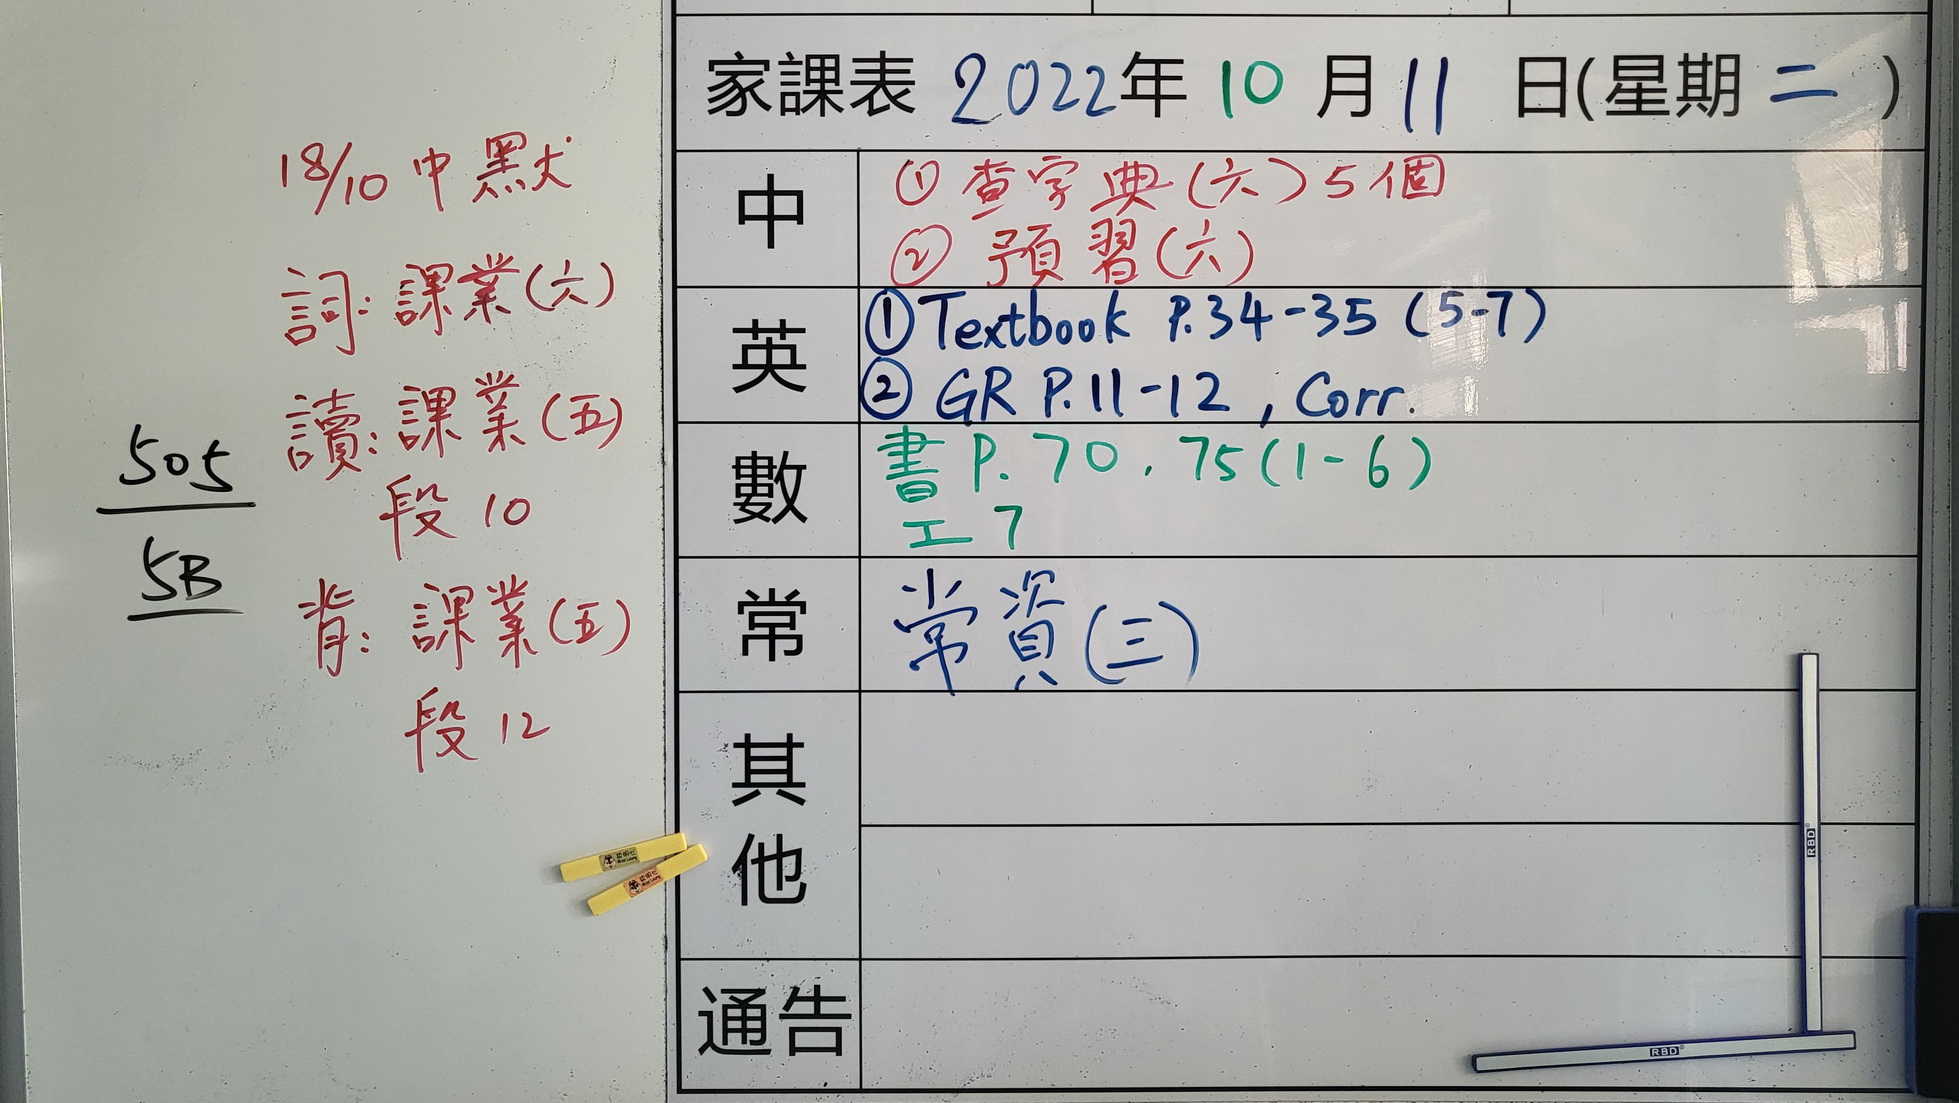 18/10 中默
詞: 課業(六)
讀: 課業(五)
段 10
背: 課業(五)
段 12
505
5B
家課表 2022年 10 月 11 日(星期 二 )
中
① 查字典(六) 5個
② 預習(六)
英
① Textbook P.34-35 (5-7)
② GR P.11-12, Corr.
數
書 P. 70, 75(1-6)
工 7
常
常資(三)
其他
通告
RBD
RBD